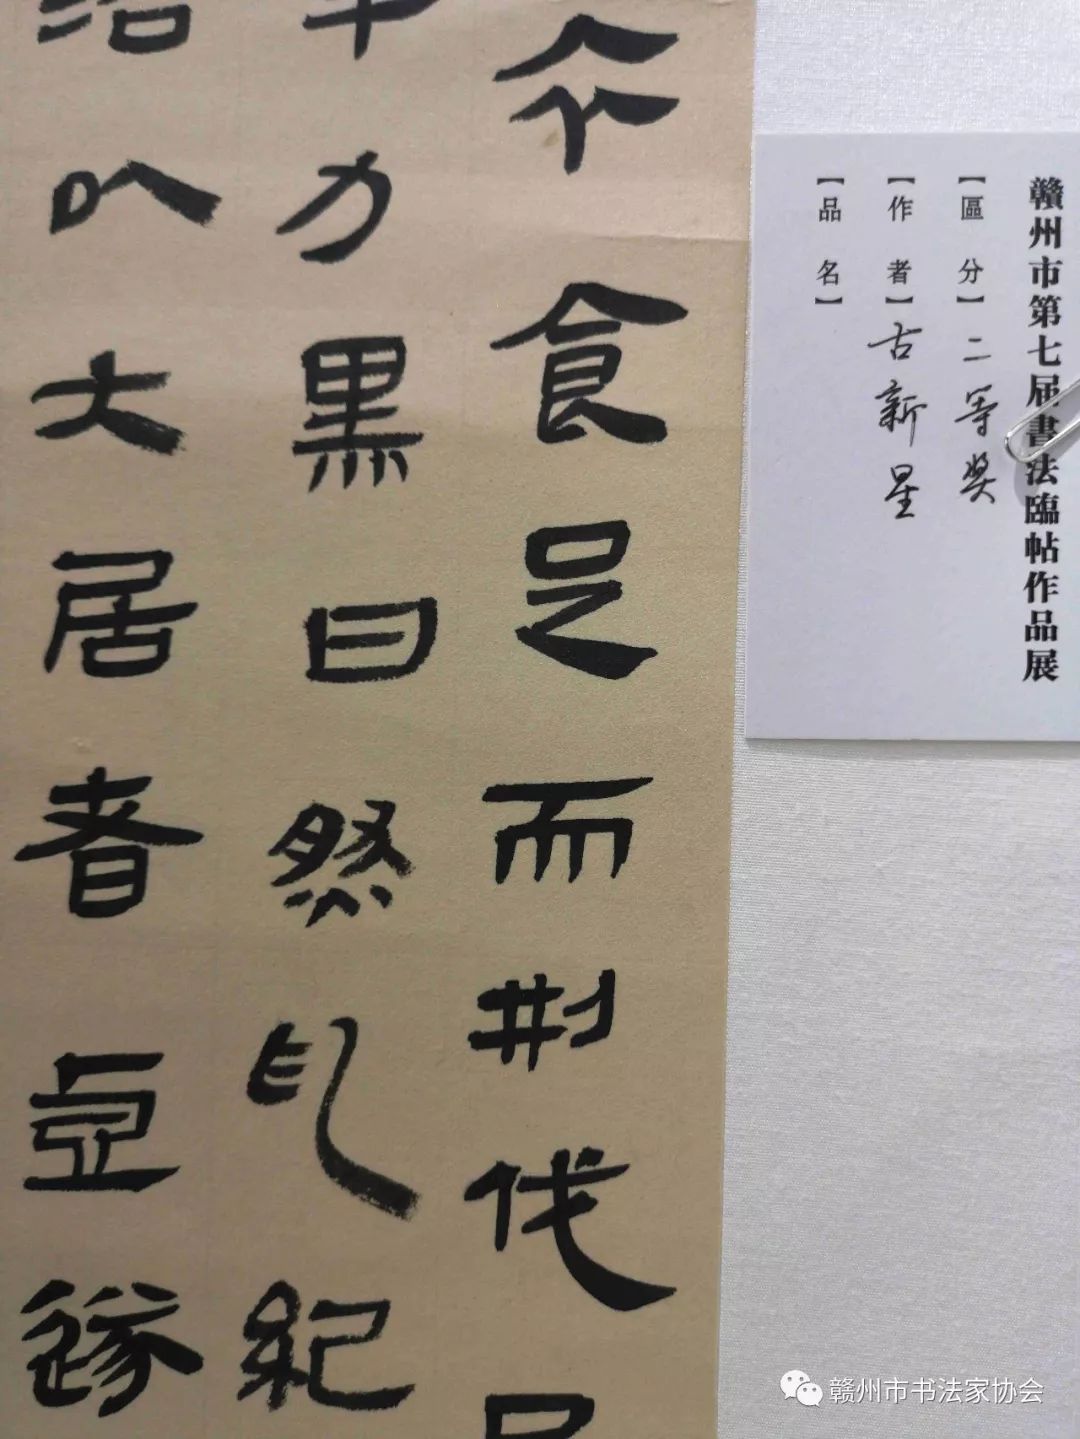 贛州市第七届書法臨帖作品展
【區 分】二等奖
【作 者】古新星
【品 名】
食足而刑伐
力黑曰然紀
以大居者
赣州市书法家协会